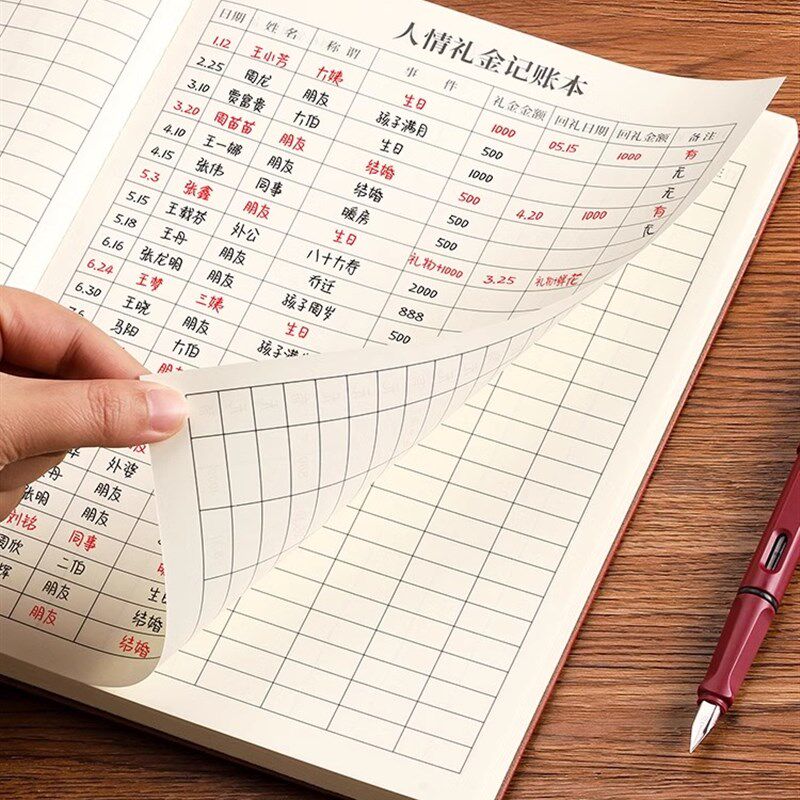 人情礼金记账本
日期 姓名 称谓 事件 礼金金额 回礼日期 回礼金额 备注
1.12 王小芳 大姨 生日 1000 05.15 1000 有
2.25 周龙 朋友 孩子满月 500 无
3.10 贾富贵 大伯 生日 1000 无
3.20 周苗苗 朋友 结婚 500 4.20 1000 有
4.10 王一娜 朋友 结婚 500 无
4.15 张伟 同事 暖房 500
5.3 张鑫 朋友 生日 礼物+1000 3.25 礼物+鲜花
5.15 王载芬 外公 八十大寿 2000
5.18 王丹 朋友 乔迁 888
6.16 张龙明 朋友 孩子周岁 500
6.24 王梦 三姨 生日
6.30 王晓 朋友 孩子满月
马阳 大伯
朋友
外婆
丹 朋友
张明 朋友
刘铭 同事
周欣 二伯 生日
辉 朋友 结婚
朋友 结婚